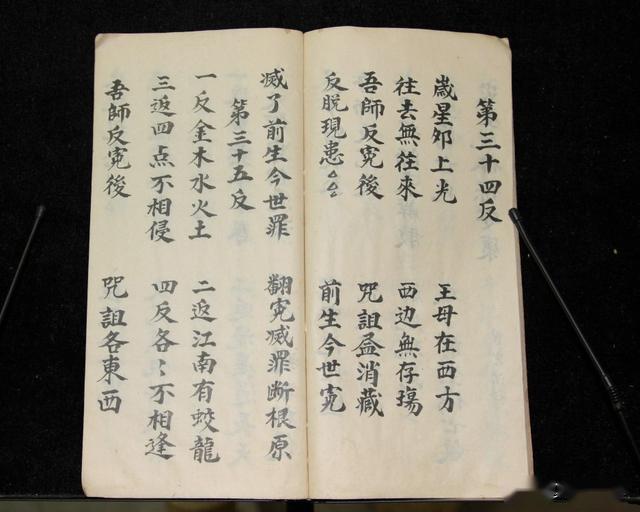 第三十四反
歲星卯上光 王母在西方
往去無往來 西边無存瑒
吾師反寃後 咒詛盡消藏
反脱現患 前生今世寃
滅了前生今世罪 翻寃滅罪断根原
第三十五反
一反金木水火土 二返江南有蛟龍
三返四点不相侵 四反各〻不相逢
吾師反寃後 咒詛各東西